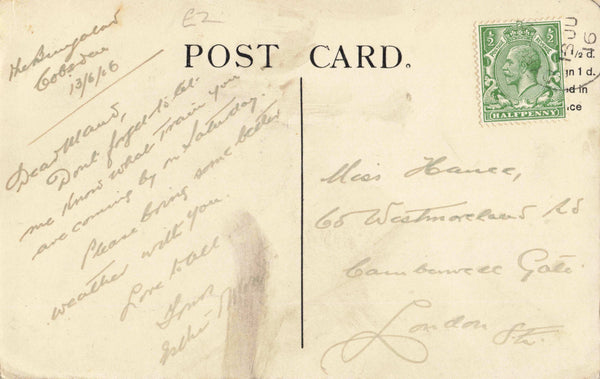 E2
POST CARD.
The Bungalow
Cobeden
13/6/16
Dear Maud,
Don't forget to let
me know what train you
are coming by on Saturday.
Please bring some better
weather with you.
Love to all
½ d.
gn 1 d.
d in
ce
HALFPENNY
Miss Hance,
65 Westmoreland Rd
Camberwell Gate
London